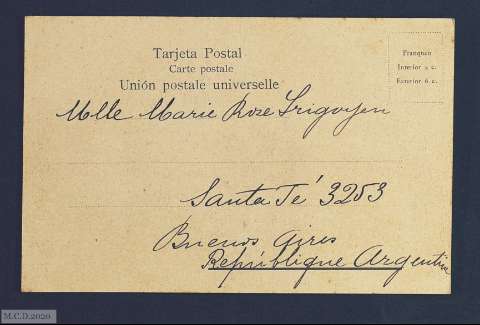 Tarjeta Postal
Carte postale
Unión postale universelle
Franqueo
Interior 2 c.
Exterior 6 c.
Mlle Marie Rose Irigoyen
Santa Fé 3253
Buenos Aires
República Argentine
M.C.D.2020